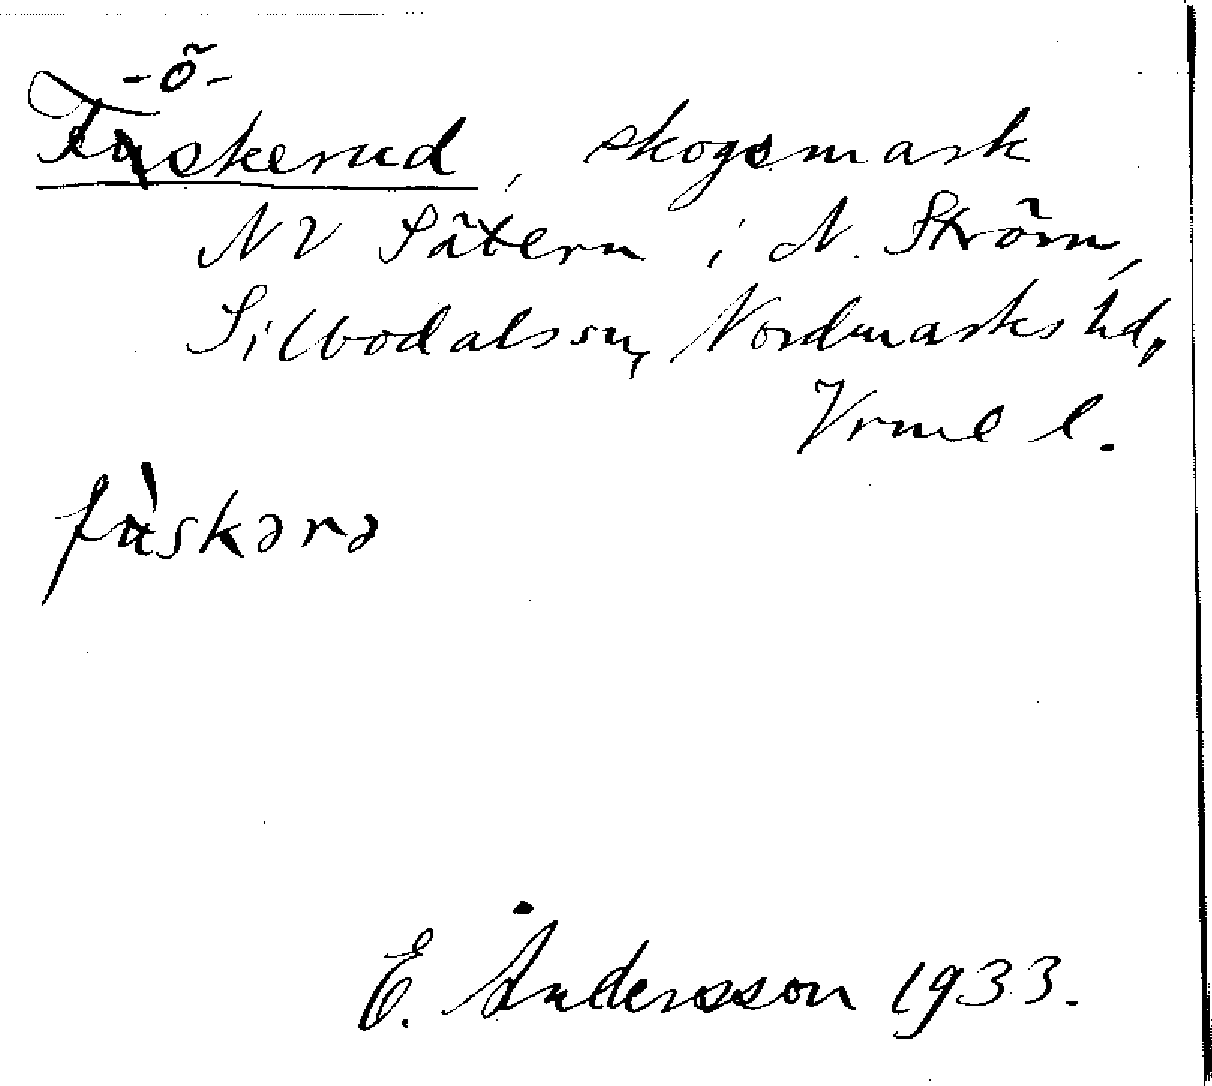 -ö-
Fuskerud, skogsmark
NV Sätern i N. Ström,
Silbodalssn, Nordmarks hd,
Vrml l.
fùskərə
E. Andersson 1933.